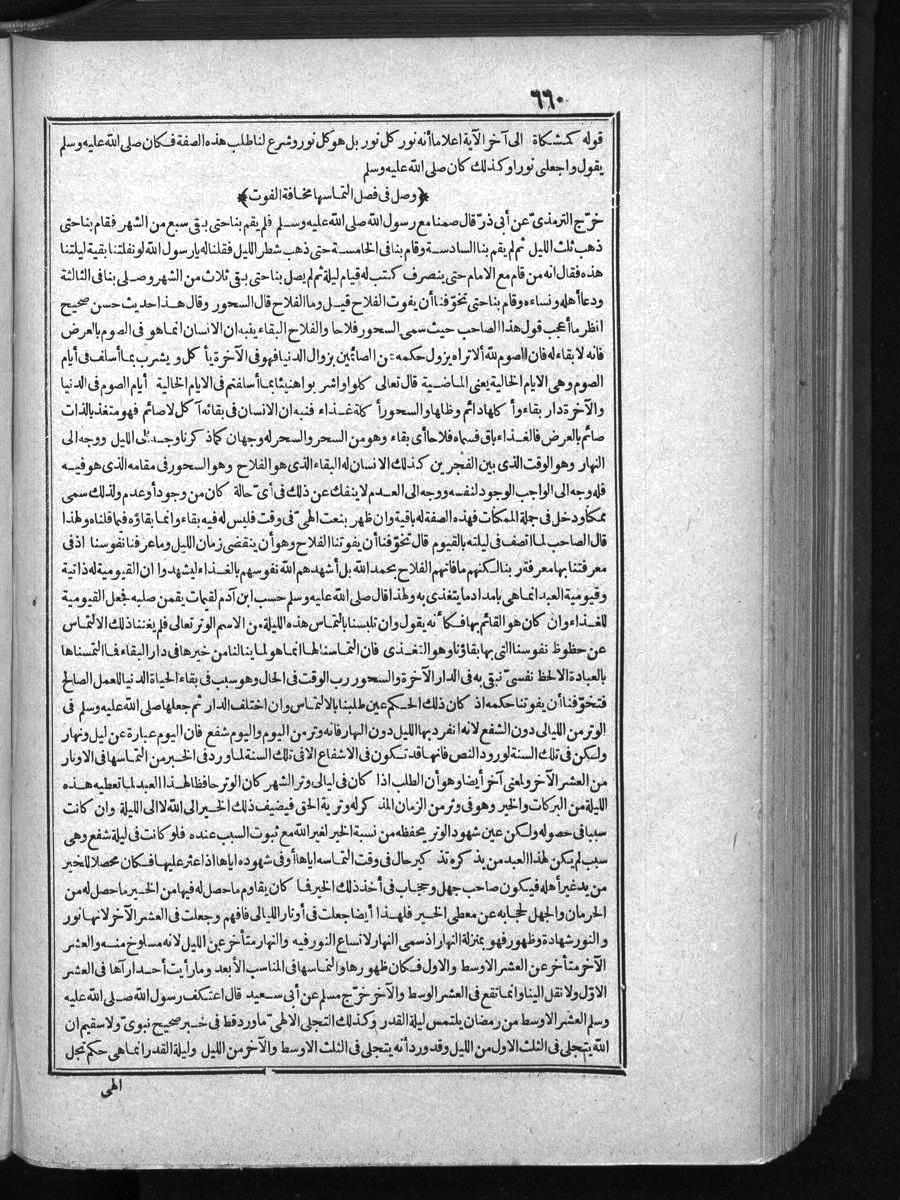 ٦٦٠
قوله كمشكاة الى آخر الآية اعلاما أنه نور كل نور بل هو كل نور وشرع لنا طلب هذه الصفة فكان صلى الله عليه وسلم
يقول واجعلنى نورا وكذلك كان صلى الله عليه وسلم
﴿وصل فى فصل التماسها مخافة الفوت﴾
خرّج الترمذىّ عن أبى ذرّ قال صمنا مع رسول الله صلى الله عليه وسلم فلم يقم بنا حتى بقى سبع من الشهر فقام بنا حتى
ذهب ثلث الليل ثم لم يقم بنا السادسة وقام بنا فى الخامسة حتى ذهب شطر الليل فقلنا له يا رسول الله لو نفلتنا بقية ليلتنا
هذه فقال انه من قام مع الامام حتى ينصرف كتب له قيام ليلة ثم لم يصل بنا حتى بقى ثلاث من الشهر وصلى بنا فى الثالثة
ودعا أهله ونساءه وقام بنا حتى تخوّفنا أن يفوت الفلاح قيل وما الفلاح قال السحور وقال هذا حديث حسن صحيح
انظر ما أعجب قول هذا الصاحب حيث سمى السحور فلاحا والفلاح البقاء ينبه ان الانسان انما هو فى الصوم بالعرض
فانه لا بقاء له فان الصوم لله ألا تراه يزول حكمه عن الصائمين بزوال الدنيا فهو فى الآخرة يأكل ويشرب بما أسلف فى أيام
الصوم وهى الايام الخالية يعنى الماضية قال تعالى كلوا واشربوا هنيئا بما أسلفتم فى الايام الخالية أيام الصوم فى الدنيا
والآخرة دار بقاء وأكلها دائم وظلها والسحور أكلة غذاء فنبه ان الانسان فى بقائه آكل لا صائم فهو متغذ بالذات
صائم بالعرض فالغذاء باق فسماه فلاحا أى بقاء وهو من السحر والسحر له وجهان كما ذكرنا وجه الى الليل ووجه الى
النهار وهو الوقت الذى بين الفجرين كذلك الانسان له البقاء الذى هو الفلاح وهو السحور فى مقامه الذى هو فيه
فله وجه الى الواجب الوجود لنفسه ووجه الى العدم لا ينفك عن ذلك فى أىّ حالة كان من وجود أو عدم ولذلك سمى
ممكنا ودخل فى جملة الممكنات فهذه الصفة له باقية وان ظهر بنعت الهىّ فى وقت فليس له فيه بقاء وانما بقاؤه فيما قلناه ولهذا
قال الصاحب لما اتصف فى ليلته بالقيوم قال تخوّفنا أن يفوتنا الفلاح وهو أن ينقضى زمان الليل وما عرفنا نفوسنا اذ فى
معرفتنا بها معرفة ربنا لكنهم ما فاتهم الفلاح بحمد الله بل أشهدهم الله نفوسهم بالغذاء ليشهدوا ان القيومية له ذاتية
وقيومية العبد انما هى بامداد ما يتغذى به ولهذا قال صلى الله عليه وسلم حسب ابن آدم لقيمات يقمن صلبه فجعل القيومية
للغذاء وان كان هو القائم بها فكأنه يقول وان تلبسنا بالتماس هذه الليلة من الاسم الوتر تعالى فلم يغننا ذلك الالتماس
عن حظوظ نفوسنا التى بها بقاؤنا وهو التغذى فان التماسنا لها انما هو لما ينالنا من خيرها فى دار البقاء فما التمسناها
بالعبادة الا لحظ نفسىّ نبقى به فى الدار الآخرة والسحور رب الوقت فى الحال وهو سبب فى بقاء الحياة الدنيا للعمل الصالح
فتخوّفنا أن يفوتنا حكمه اذ كان ذلك الحكم عين طلبنا بالالتماس وان اختلف الدار ثم جعلها صلى الله عليه وسلم فى
الوتر من الليالى دون الشفع لانه انفرد بها الليل دون النهار فانه وتر من اليوم واليوم شفع فان اليوم عبارة عن ليل ونهار
ولكن فى تلك السنة لورود النص فانها قد تكون فى الاشفاع الا فى تلك السنة لما ورد فى الخبر من التماسها فى الاوتار
من العشر الآخر ولمعنى آخر أيضا وهو أن الطلب اذا كان فى ليالى وتر الشهر كان الوتر حافظا لهذا العبد لما تعطيه هذه
الليلة من البركات والخير وهو فى وتر من الزمان المذكر له وترية الحق فيضيف ذلك الخير الى الله لا الى الليلة وان كانت
سببا فى حصوله ولكن عين شهود الوتر يحفظه من نسبة الخير لغير الله مع ثبوت السبب عنده فلو كانت فى ليلة شفع وهى
سبب لم يكن لهذا العبد من يذكره تذكير حال فى وقت التماسه اياها أو فى شهوده اياها اذا عثر عليها فكان محصلا للخير
من يد غير أهله فيكون صاحب جهل وحجاب فى أخذ ذلك الخير فما كان يقاوم ما حصل له فيها من الخير ما حصل له من
الحرمان والجهل لحجابه عن معطى الخير فلهذا أيضا جعلت فى أوتار الليالى فافهم وجعلت فى العشر الآخر لانها نور
والنور شهادة وظهور فهو بمنزلة النهار اذ سمى النهار لاتساع النور فيه والنهار متأخر عن الليل لانه مسلوخ منه والعشر
الآخر متأخر عن العشر الاوسط والاول فكان ظهورها والتماسها فى المناسب الأبعد وما رأيت أحدا رآها فى العشر
الاوّل ولا نقل الينا وانما تقع فى العشر الوسط والآخر خرّج مسلم عن أبى سعيد قال اعتكف رسول الله صلى الله عليه
وسلم العشر الاوسط من رمضان يلتمس ليلة القدر وكذلك التجلى الالهىّ ما ورد قط فى خبر صحيح نبوىّ ولا سقيم ان
الله يتجلى فى الثلث الاول من الليل وقد ورد أنه يتجلى فى الثلث الاوسط والآخر من الليل وليلة القدر انما هى حكم تجل
الهى